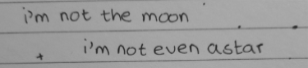 i'm not the moon
i'm not even a star